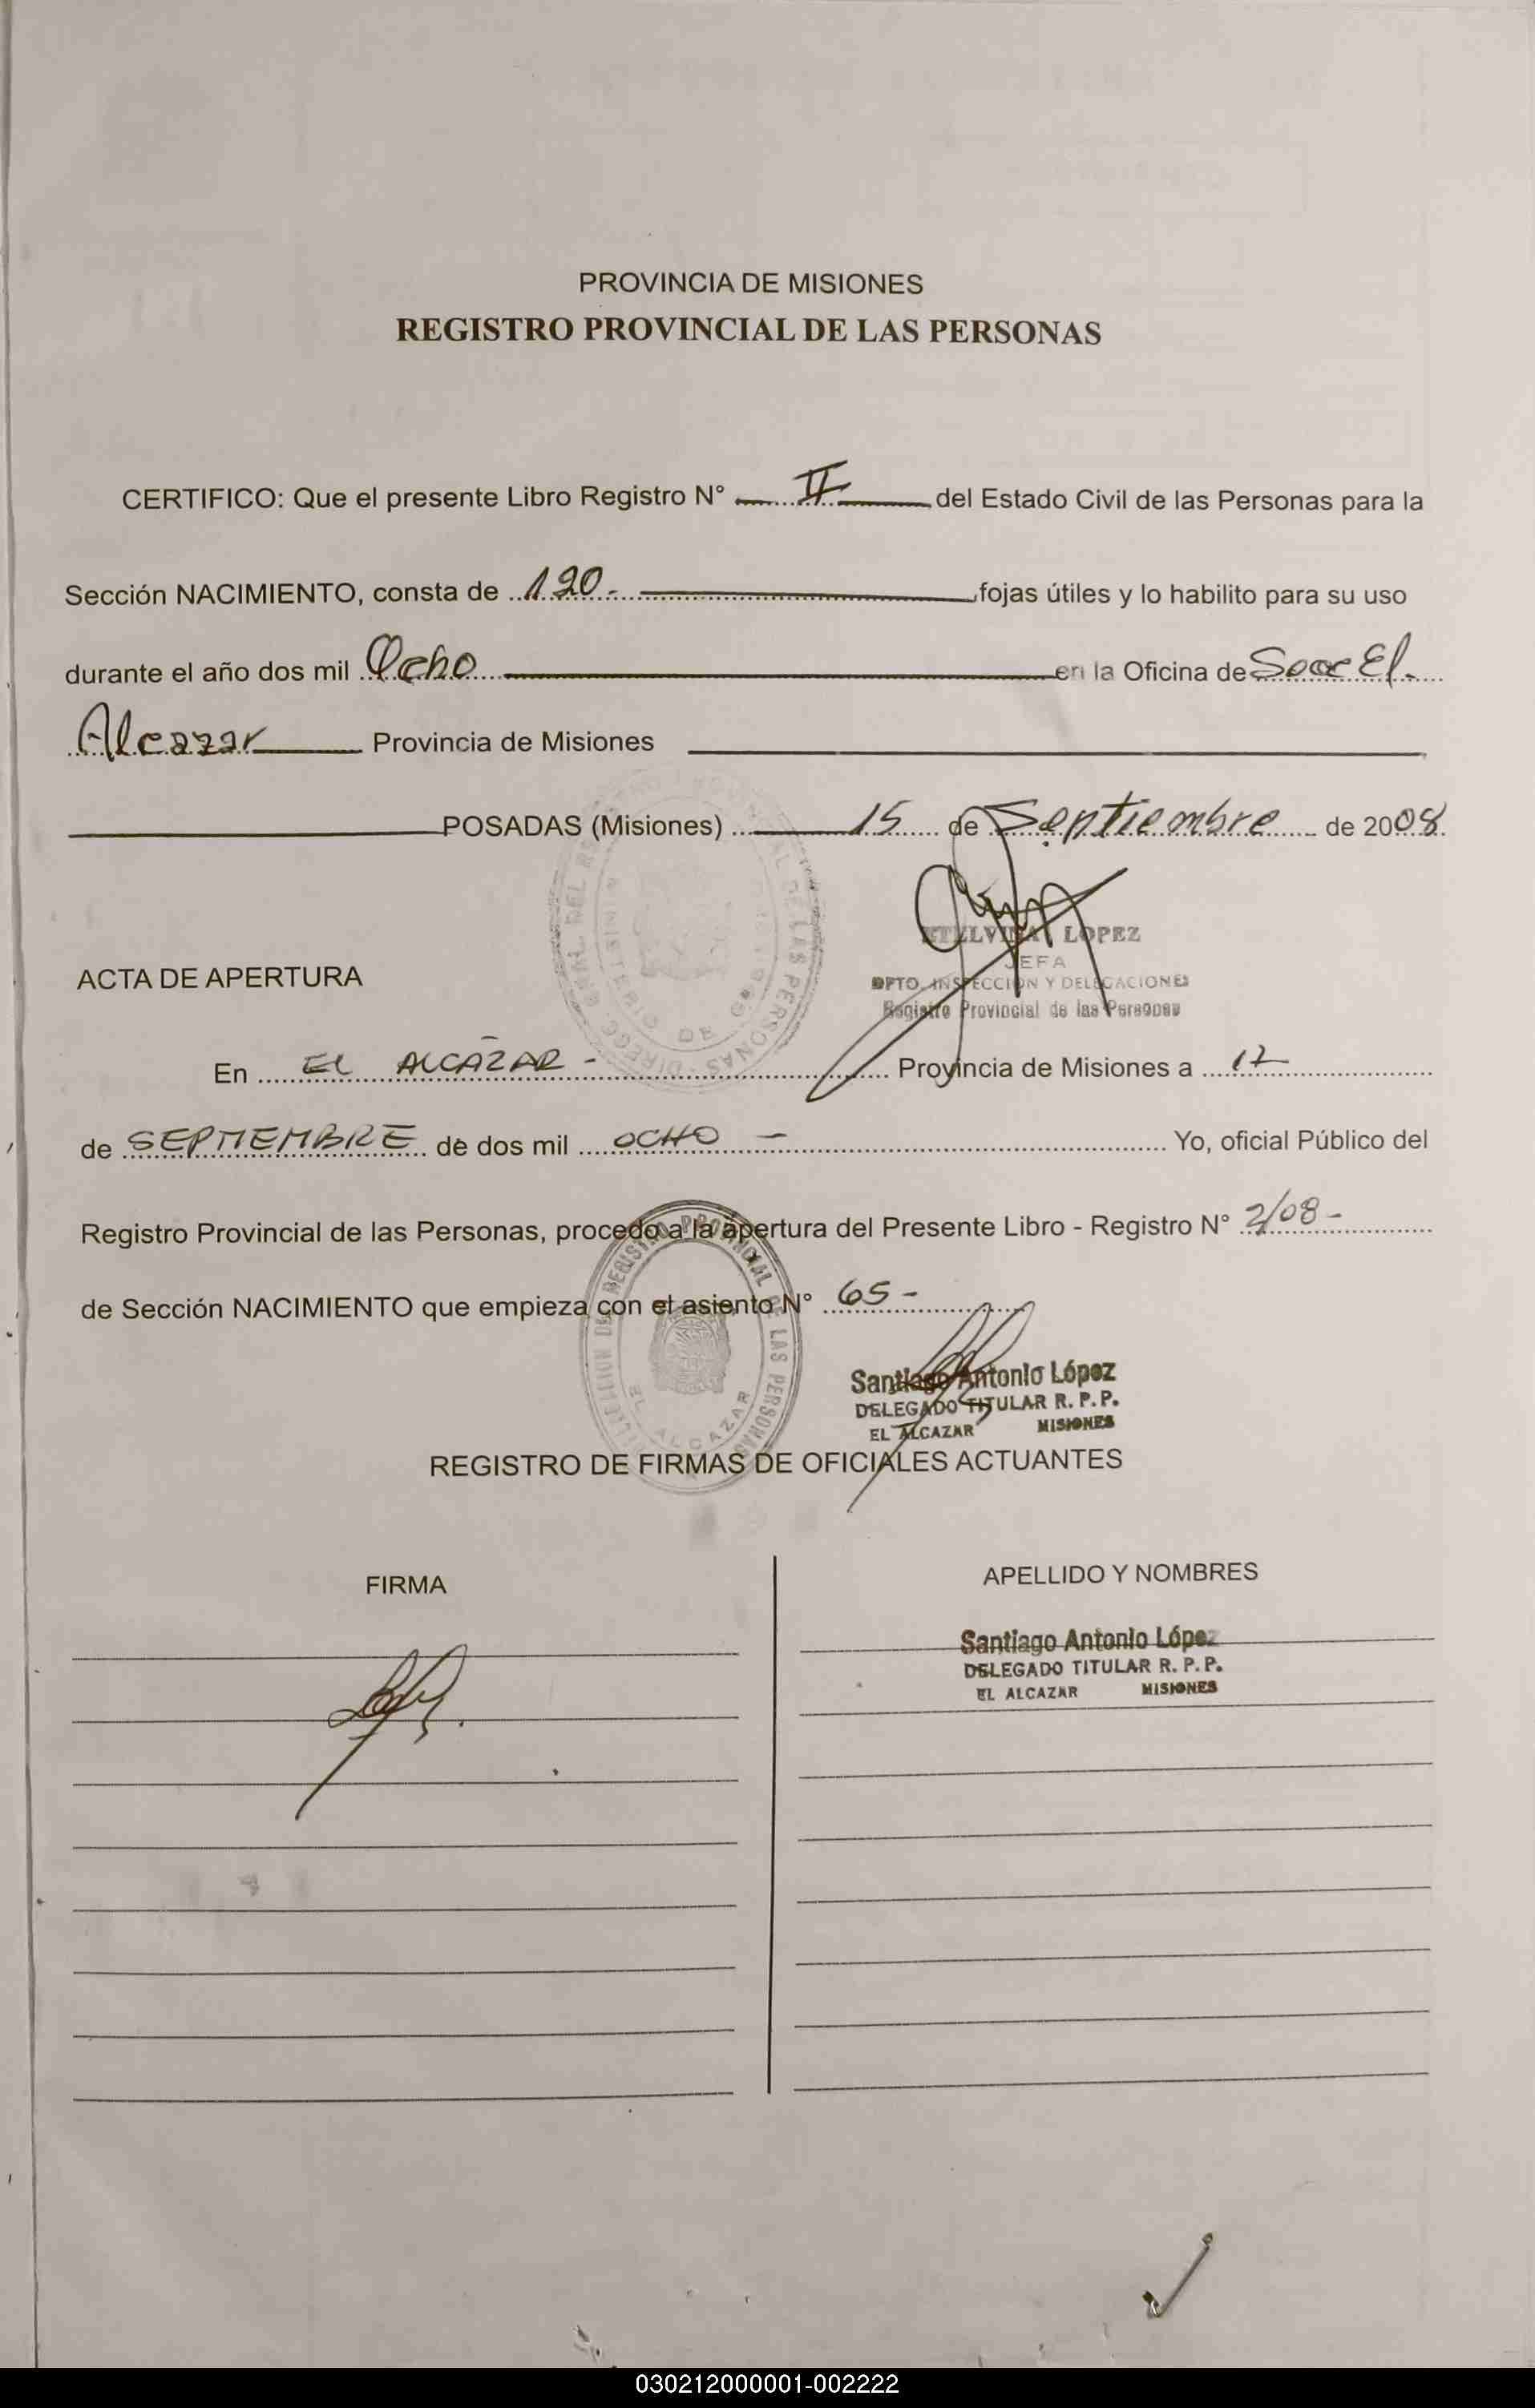 PROVINCIA DE MISIONES
REGISTRO PROVINCIAL DE LAS PERSONAS
CERTIFICO: Que el presente Libro Registro N° II del Estado Civil de las Personas para la
Sección NACIMIENTO, consta de 120.- fojas útiles y lo habilito para su uso
durante el año dos mil Ocho en la Oficina de El
Alcazar Provincia de Misiones
POSADAS (Misiones) 15 de Septiembre de 2008.
LOPEZ
JEFA
DPTO. INSPECCION Y DELEGACIONES
Registro Provincial de las Personas
ACTA DE APERTURA
En EL ALCAZAR - Provincia de Misiones a 17
de SEPTIEMBRE de dos mil OCHO - Yo, oficial Público del
Registro Provincial de las Personas, procedo a la apertura del Presente Libro - Registro N° 2/08 -
de Sección NACIMIENTO que empieza con el asiento N° 65 -
Santiago Antonio López
DELEGADO TITULAR R. P. P.
EL ALCAZAR MISIONES
REGISTRO DE FIRMAS DE OFICIALES ACTUANTES
FIRMA APELLIDO Y NOMBRES
Santiago Antonio López
DELEGADO TITULAR R. P. P.
EL ALCAZAR MISIONES
030212000001-002222